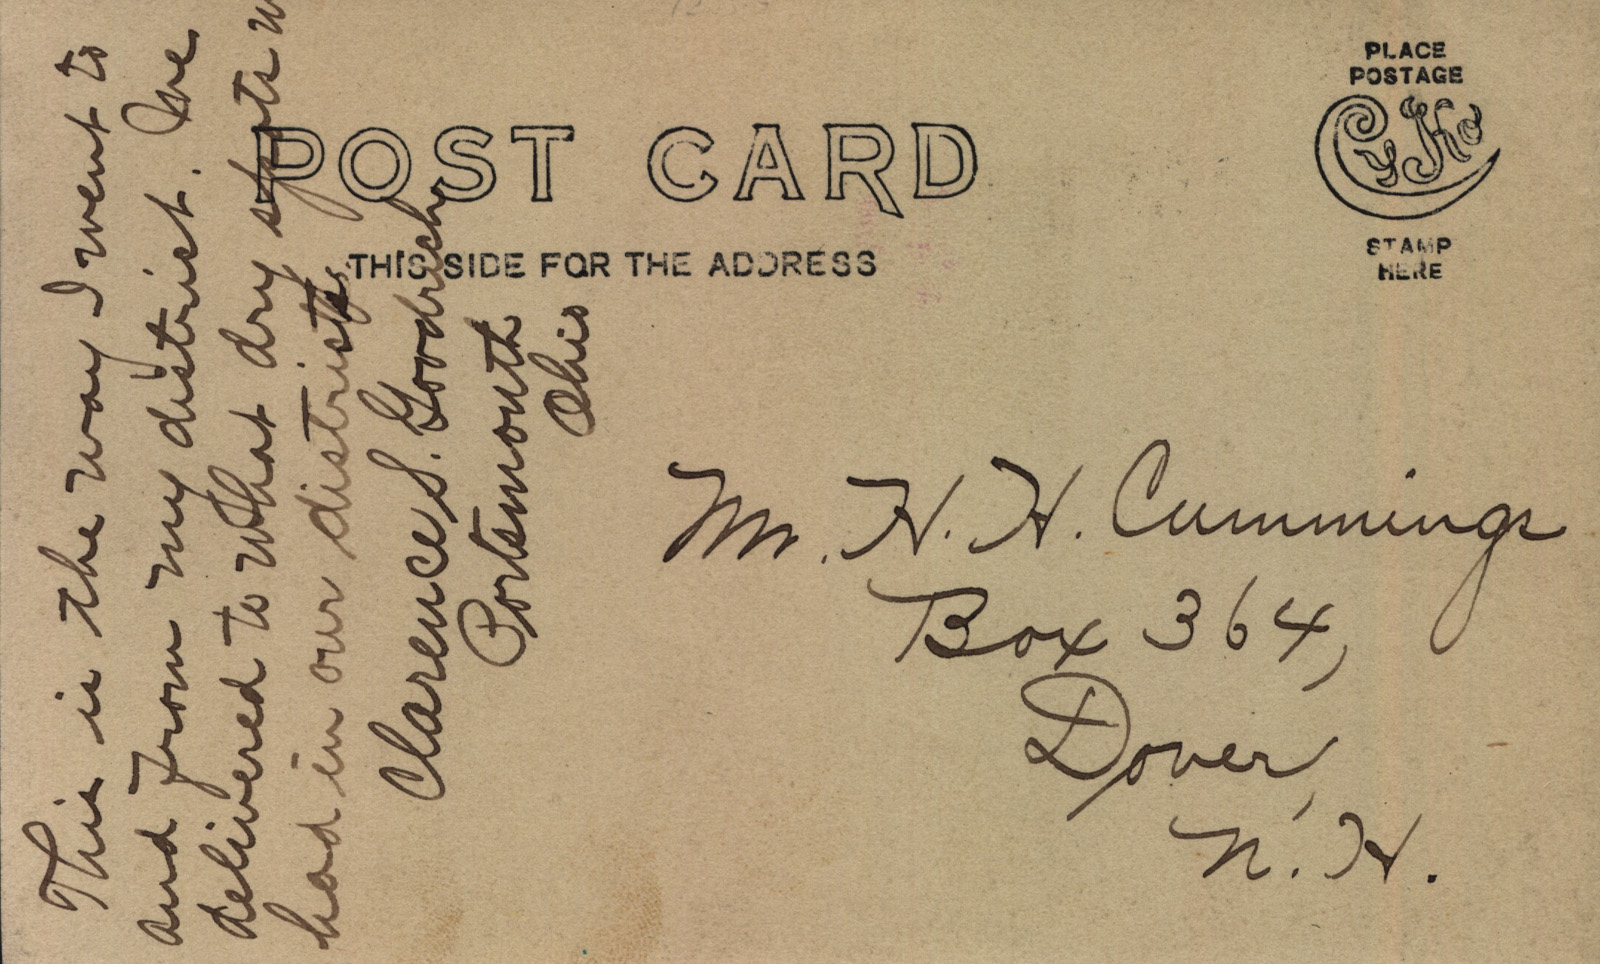 This is the way I went to
and from my district. We
delivered to what dry spots w
had in our districts.
Clarence S. Goodrich
Portsmouth
Ohio
POST CARD
THIS SIDE FOR THE ADDRESS
PLACE
POSTAGE
CYKO
STAMP
HERE
Mr. H. H. Cummings
Box 364,
Dover,
N. H.